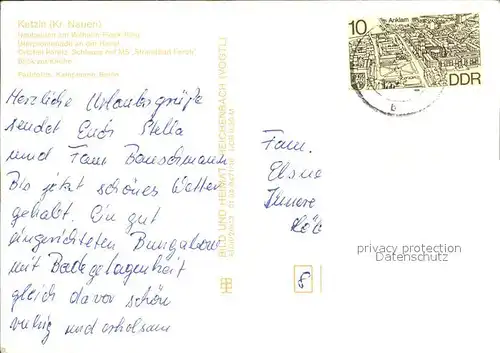 Ketzin (Kr. Nauen)
Neubauten am Wilhelm-Pieck-Ring
Uferpromenade an der Havel
Ortsteil Paretz, Schleuse mit MS „Strandbad Ferch“
Blick zur Kirche
Herzliche Urlaubsgrüße
sendet Euch Stella
und Fam. Bauschmann
Bis jetzt schönes Wetter
gehabt. Ein gut
eingerichteten Bungalow
mit Badegelegenheit
gleich davor schön
ruhig und erholsam
BILD UND HEIMAT REICHENBACH (VOGTL)
Anklam
10
DDR
b
Fam.
Elsne
Innere
privacy protection
Datenschutz